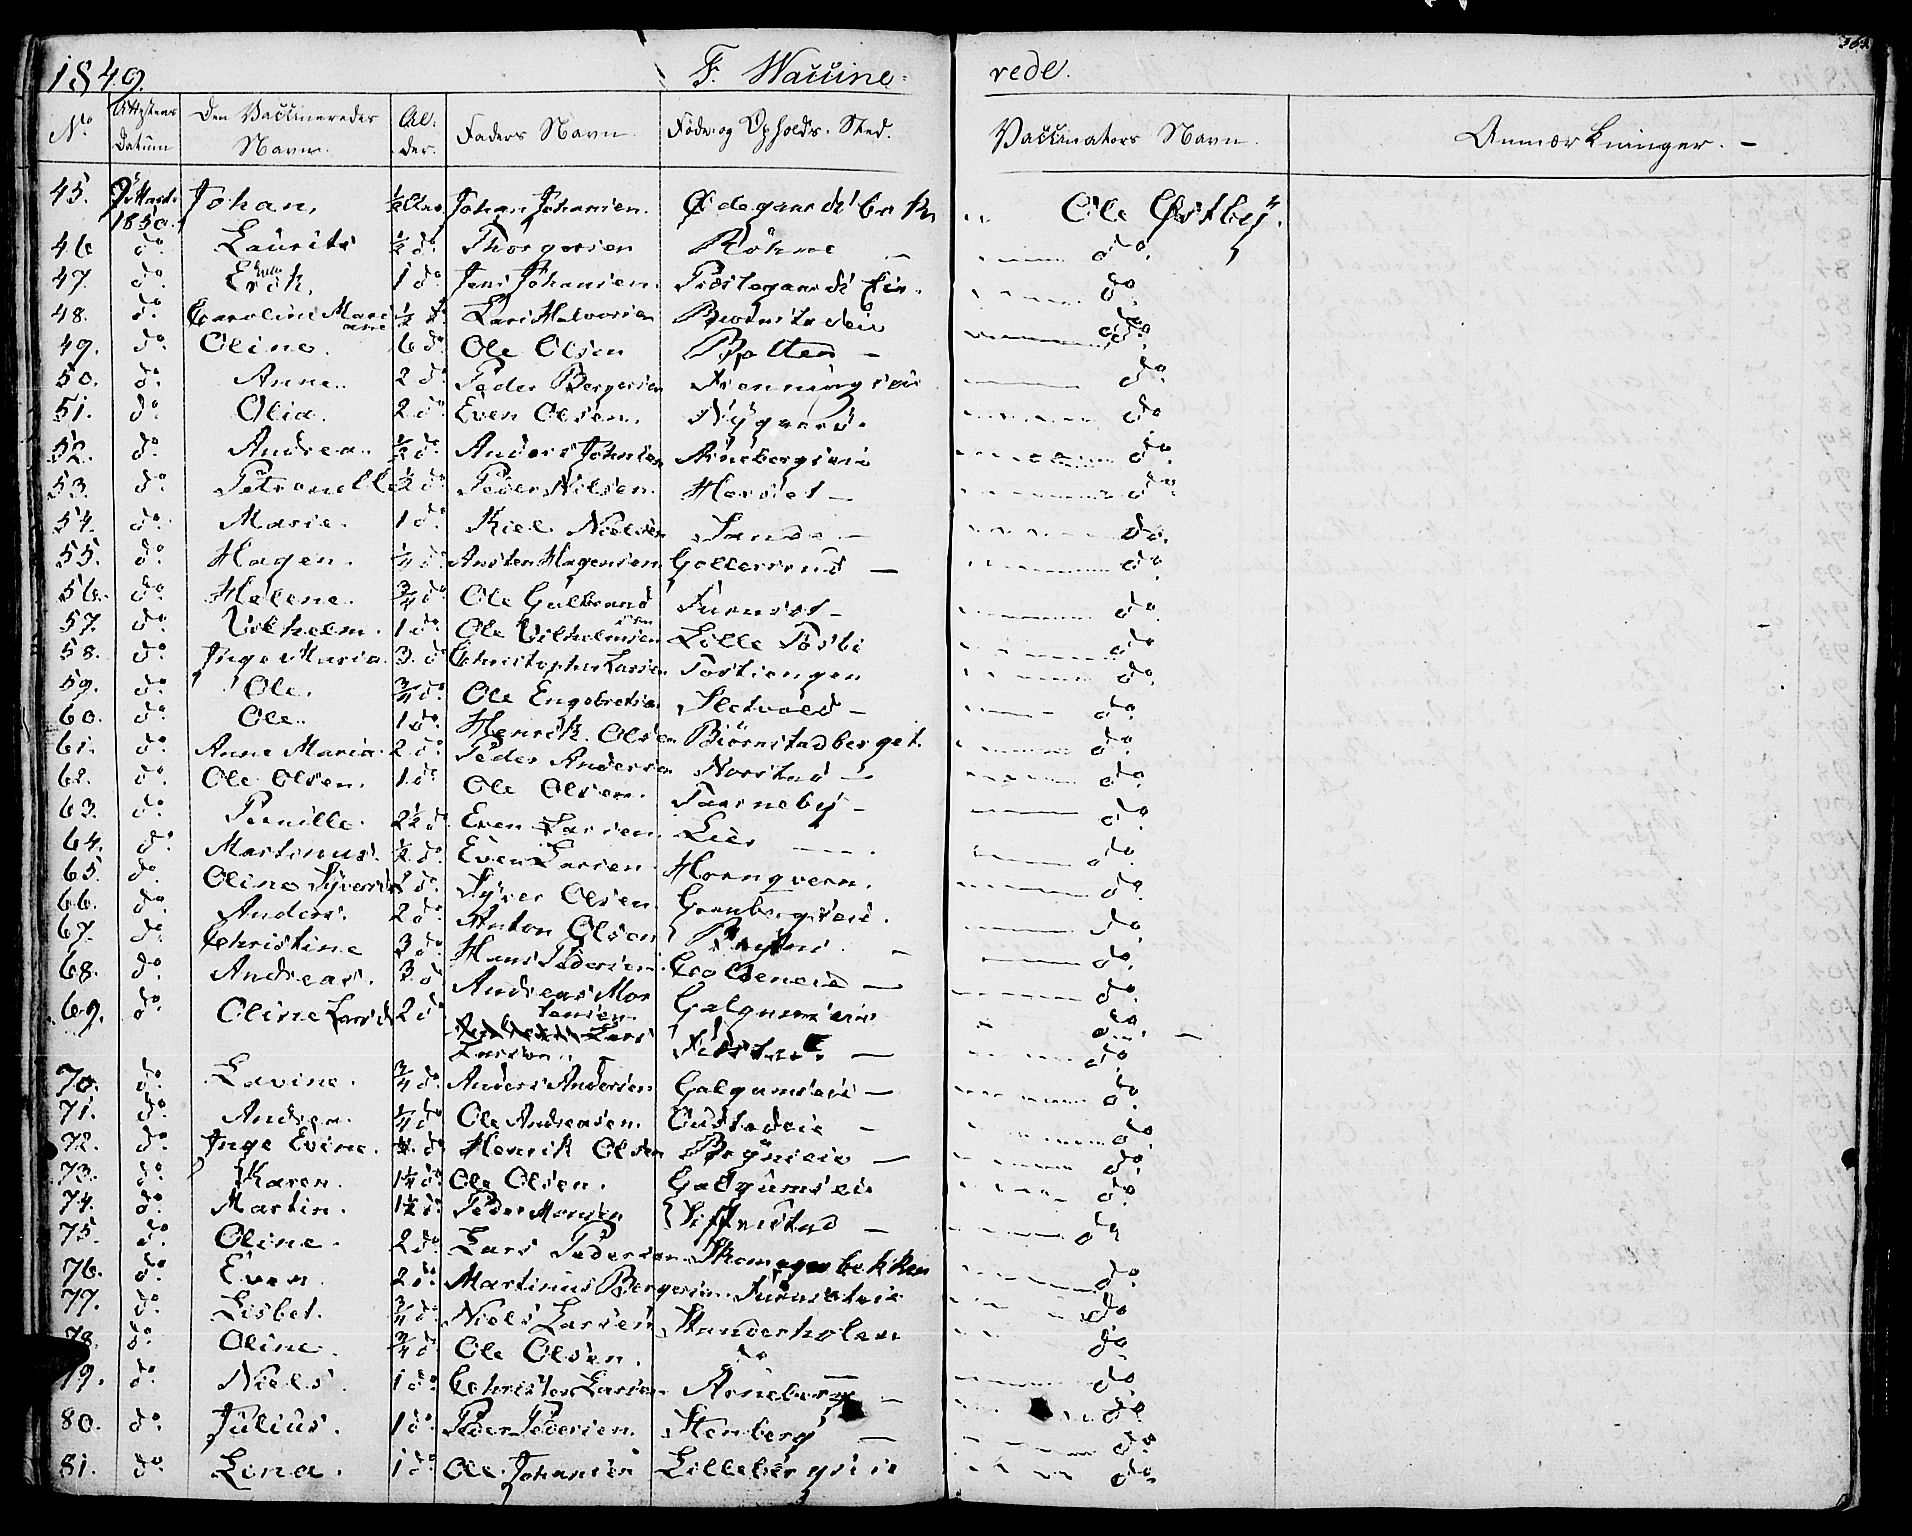 1849. F. Vaccinerede.
No. Attestens Datum Den Vaccineredes Navn. Alder. Faders Navn. Føde- og Opholds-Sted. Vaccinators Navn. Anmærkninger. -
45. Marts 1850. Johan, ½ Johan Johansen. Ole Østbÿ.
46 do. Laurits ½ do. Thorgersen Röhne — do.
47. do. Erik, 1 do. Jens Johansen. do.
48. do. Caroline Mariane ½ do. Lars Halvorsen do.
49. do. Oline. 6 do. Ole Olsen — do.
50. do. Anne. 2 do. Peder Bergersen do.
51. do. Olia. 2 do. Even Olsen. Nÿgaard. do
52. do. Andrea. ½ do. Anders Johnsen Arnebergseie do.
53. do. Petronelle ½ do. Peder Nilsen. Hersæt — do.
54. do. Marie. 1 do. Kiel Nielsen Sande — do.
55. do. Hagen. ¼ do. Austen Hagensen. — do.
56. do. Helene. ¾ do. Ole Gulbrandsen Furuset — do.
57. do. Vilhelm. 1 do. Ole Vilhelmsen Lille Tosbi do.
58. do. Inge Maria. 3. do. Christopher Larsen do.
59. do. Ole. ¾ do. Ole Engebretsen Sletvold — do.
60. do. Ole. 1 do. Henrik Olsen Biørnstadberget. do.
61. do. Anne Maria. 2 do. Peder Andersen Norstad — do.
62. do. Ole Olsen. 1 do. Ole Olsen. — do.
63. do. Pernille. 2½ do. Even Larsen Lier — do.
64. do. Martinus. ½ do. Even Larsen. Hornqvern. do.
65. do. Oline Syversd do. Syver Olsen. do.
66. do. Anders. 2 do. Anton Olsen — do.
67. do. Christine 3 do. Hans Pedersen. — do.
68. do. Andreas. 3 do Andreas Mortensen Galgumseie do.
69. do. Oline Larsd. 2 do. Lars Larsen. — do.
70. do. Lavine. ¾ do. Anders Andersen Galgumseie — do.
71. do. Andrea. ¼ do Ole Andreasen. — do.
72. do. Inge Evine. do. Henrik Olsen Brÿnieie — do.
73. do. Karen. 1¼ do. Ole Olsen. Galgumseie do.
74. do. Martin. 1¼ do. Peder Monsen — do
75. do. Oline. 2 do. Lars Pedersen Skomagerbekken do.
76. do. Even. 2 do. Martinius Bergersen. Furuseteie do
77. do. Lisbet. ¾ do. Niels Larsen Stenderholen do
78. do. Oline. ¾ do. Ole Olsen. do — do
79. do. Niels. 1 do. Christen Larsen Arneberg — do
80. do. Julius. 1 do. Peder Pedersen. Stenberg — do
81. do. Lina. 1 do. Ole Johansen Lillebergseie do.